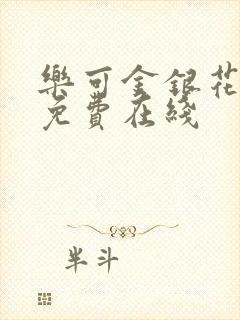 樂可金銀花
免費在綫
半斗